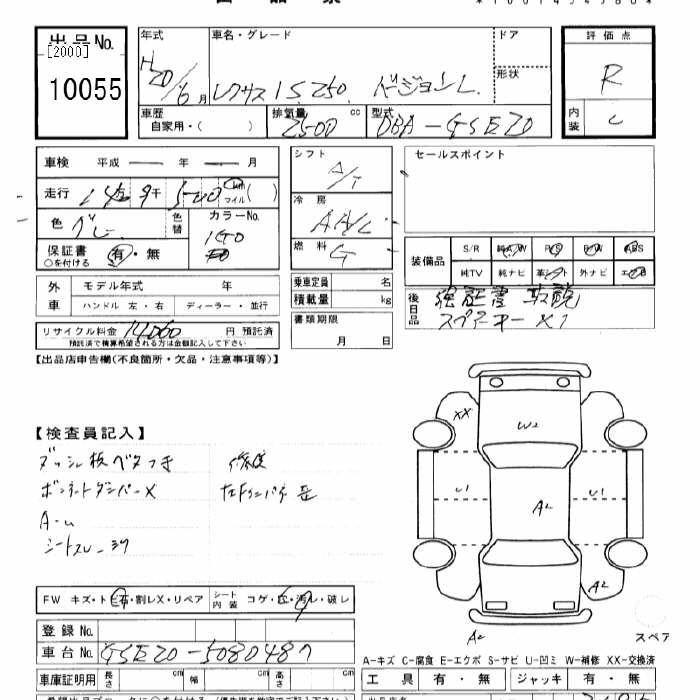 出品No.
[2000]
10055
年式 車名・グレード ドア
H20/6月 レクサス IS250 バージョンL 形状
車歴 排気量 cc 型式
自家用・( ) 2500 DBA-GSE20
評価点
R
内装 C
車検 平成 ― 年 ― 月
走行 14万 9千 500 km マイル ( )
色 グレー 色替 カラーNo. 1G0
保証書 有・無
○を付ける
外車 モデル年式 年
ハンドル 左・右 ディーラー・並行
リサイクル料金 円 預託済
預託済で積算希望される方は金額記入して下さい
シフト A/T
冷房 AA/C
燃料 G
乗車定員 名
積載量 kg
書類期限
月 日
セールスポイント
装備品 S/R 純A/W P/S P/W ABS
純TV 純ナビ 革シート 外ナビ エアB
後日品 保証書 取説
スペアキー×1
【出品店申告欄(不良箇所・欠品・注意事項等)】
【検査員記入】
ダッシュ板ベタつき
ボンネットダンパーX
シートスレ
XX
W2
U1
U1
A2
A2
A2
スペア
FW キズ・ト石・割レX・リペア シート内装 コゲ・穴・汚レ・破レ
登録No.
車台No. GSE20-5080487
車庫証明用 長さ cm 幅 cm 高さ cm
A-キズ C-腐食 E-エクボ S-サビ U-凹ミ W-補修 XX-交換済
工具 有・無 ジャッキ 有・無